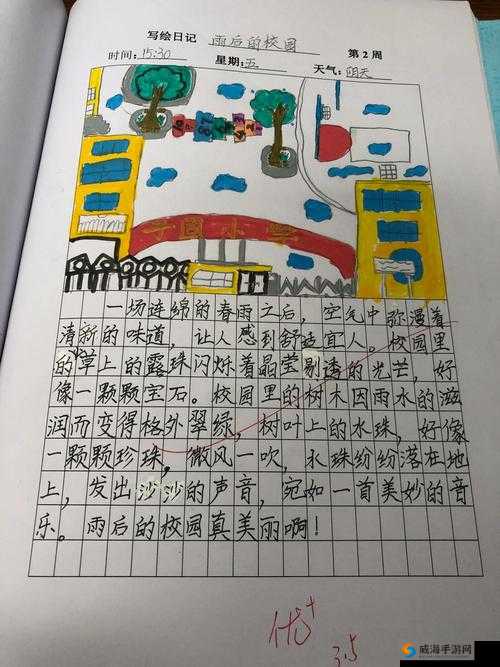 写绘日记 雨后的校园 第2周
时间:15:30 星期:五 天气:阴天
10 8 7
子园小学
一场连绵的春雨之后，空气中弥漫着
清新的味道，让人感到舒适宜人。校园里
的草上的露珠闪烁着晶莹剔透的光芒，好
像一颗颗宝石。校园里的树木因雨水的滋
润而变得格外翠绿，树叶上的水珠，好像
一颗颗珍珠，微风一吹，水珠纷纷落在地
上，发出沙沙的声音，宛如一首美妙的音
乐。雨后的校园真美丽啊！
优+
3.5
威海手游网